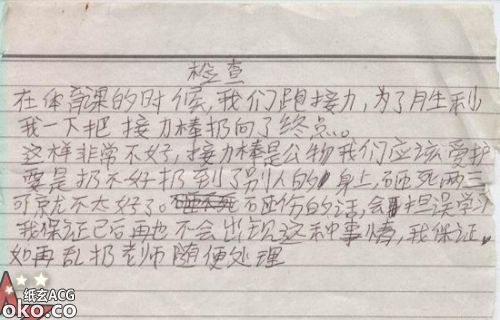 检查
在体育课的时候,我们跑接力,为了胜利
我一下把接力棒扔向了终点。
这样非常不好,接力棒是公物我们应该爱护
要是扔不好扔到了别人的身上,砸死两三
可就不太好了。砸伤的话,会担误学习
我保证已后再也不会出现这种事情,我保证。
如再乱扔老师随便处理
纸玄ACG
oko.co